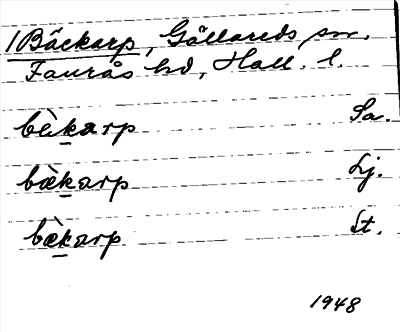 1 Bäckarp, Gällareds sn.
Faurås hd, Hall. l.
bèkarp Sa.
bæ̀karp Lj.
bæ̀karp St.
1948